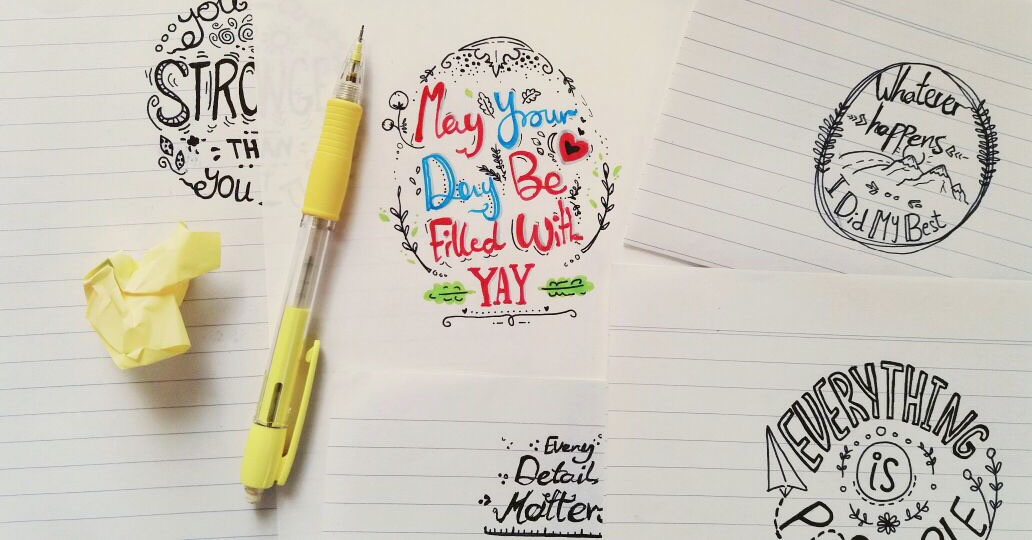 you
STRO
: TH
you
May Your
Day Be
Filled With
YAY
Whatever
happens
I Did My Best
Every
Detail
Matter
EVERYTHING
is